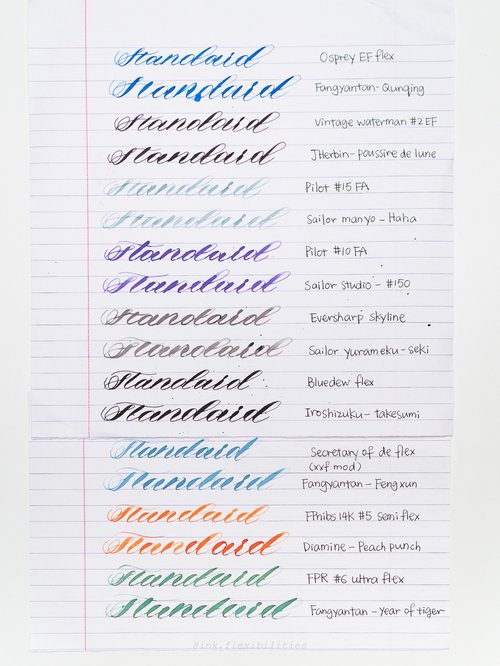 Standard Osprey EF flex
Standard Fangyantan-Qunqing
Standard Vintage waterman #2 EF
Standard JHerbin-poussire de lune
Standard Pilot #15 FA
Standard Sailor manyo - Haha
Standard Pilot #10 FA
Standard Sailor Studio - #150
Standard Eversharp skyline
Standard Sailor yurameku-seki
Standard Bluedew flex
Standard Iroshizuku-takesumi
Standard Secretary of de flex
(xxf mod)
Standard Fangyantan-Fengxun
Standard FPnibs 14K #5 semi flex
Standard Diamine-Peach punch
Standard FPR #6 ultra flex
Standard Fangyantan-year of tiger
@ink.flexibilities